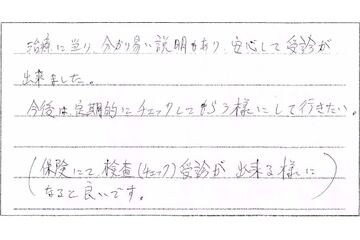 治療に当り、分かり易い説明もあり、安心して受診が
出来ました。
今後は、定期的にチェックしてもらう様にして行きたい。
(保険にて、検査(チェック)受診が、出来る様に
なると良いです。)